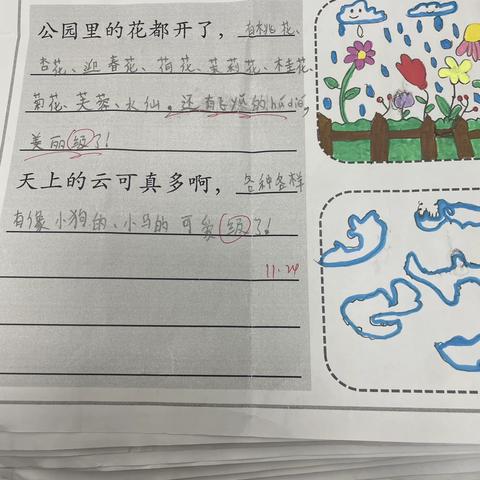 公园里的花都开了，有桃花、
杏花、迎春花、荷花、茉莉花、桂花、
菊花、芙蓉、水仙。还有飞的húdié，
美丽级了！
天上的云可真多啊，各种各样
有像小狗的、小马的可爱级了！
11.24